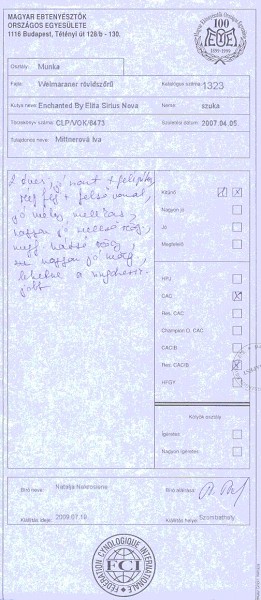 MAGYAR EBTENYÉSZTŐK
ORSZÁGOS EGYESÜLETE
1116 Budapest, Tétényi út 128/b - 130.
100
MEOE
1899-1999
Osztály: Munka
Fajta: Weimaraner rövidszőrű
Katalógus száma: 1323
Kutya neve: Enchanted By Elita Sirius Nova
Neme: szuka
Törzskönyvi száma: CLP/VOK/6473
Születési dátum: 2007.04.05.
Tulajdonos neve: Mittnerová Iva
2 éves, jó
fej + felső vonal,
jó mély mellkas,
nagyon jó mellső
nagyon jó mozg.
lehetne a
jobb
Kitűnő
Nagyon jó
Jó
Megfelelő
HPJ
CAC
Res. CAC
Champion O. CAC
CACIB
Res. CACIB
HFGY
Kölyök osztály
Ígéretes
Nagyon ígéretes
Bíró neve: Natalja Nekrosiene
Bíró aláírása:
Kiállítás ideje: 2009.07.19.
Kiállítás helye: Szombathely
FEDERATION CYNOLOGIQUE INTERNATIONALE
FCI